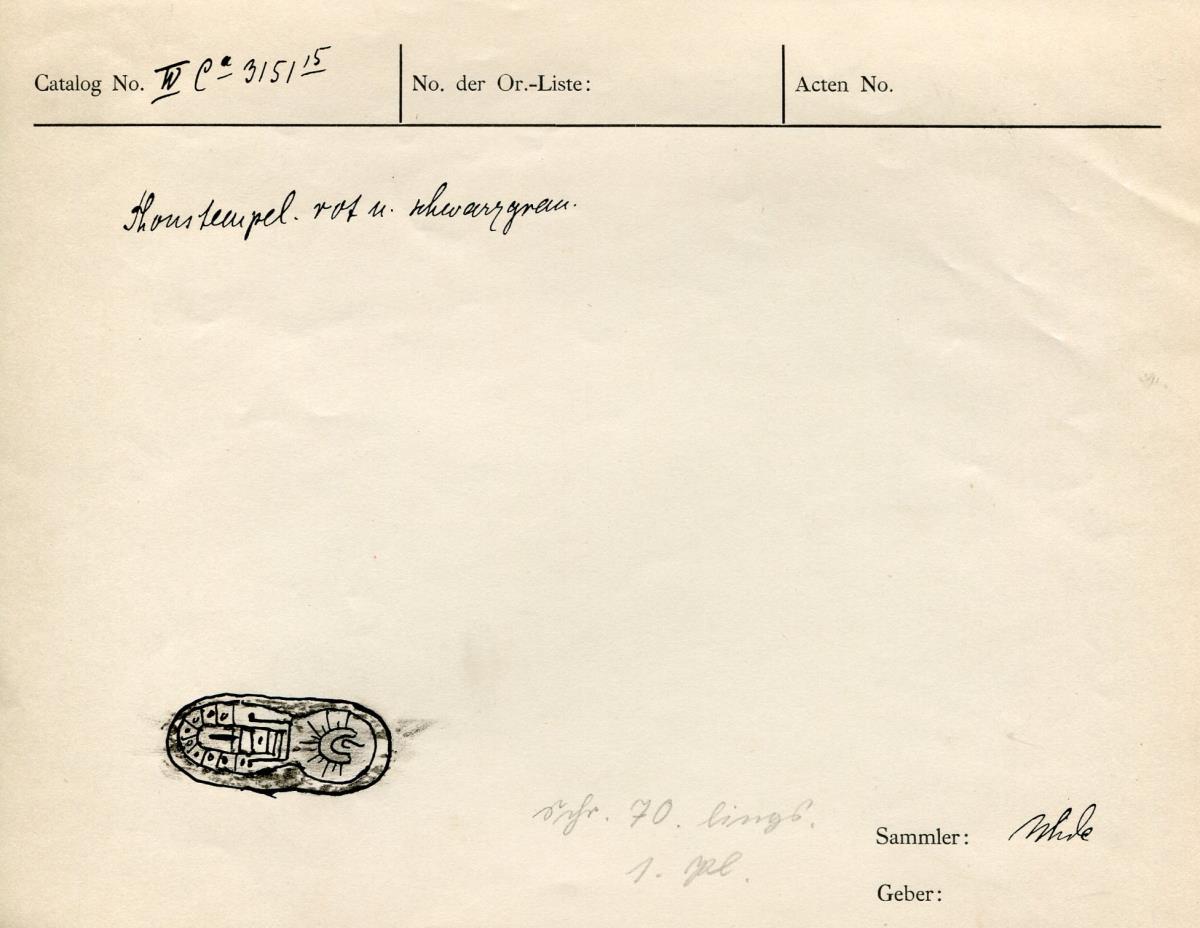 Catalog No. IV Ca 3151 15
No. der Or.-Liste:
Acten No.
Thonstempel. rot u. schwarzgrau.
Schr. 70. lings.
1. Pl.
Sammler: Uhde
Geber: